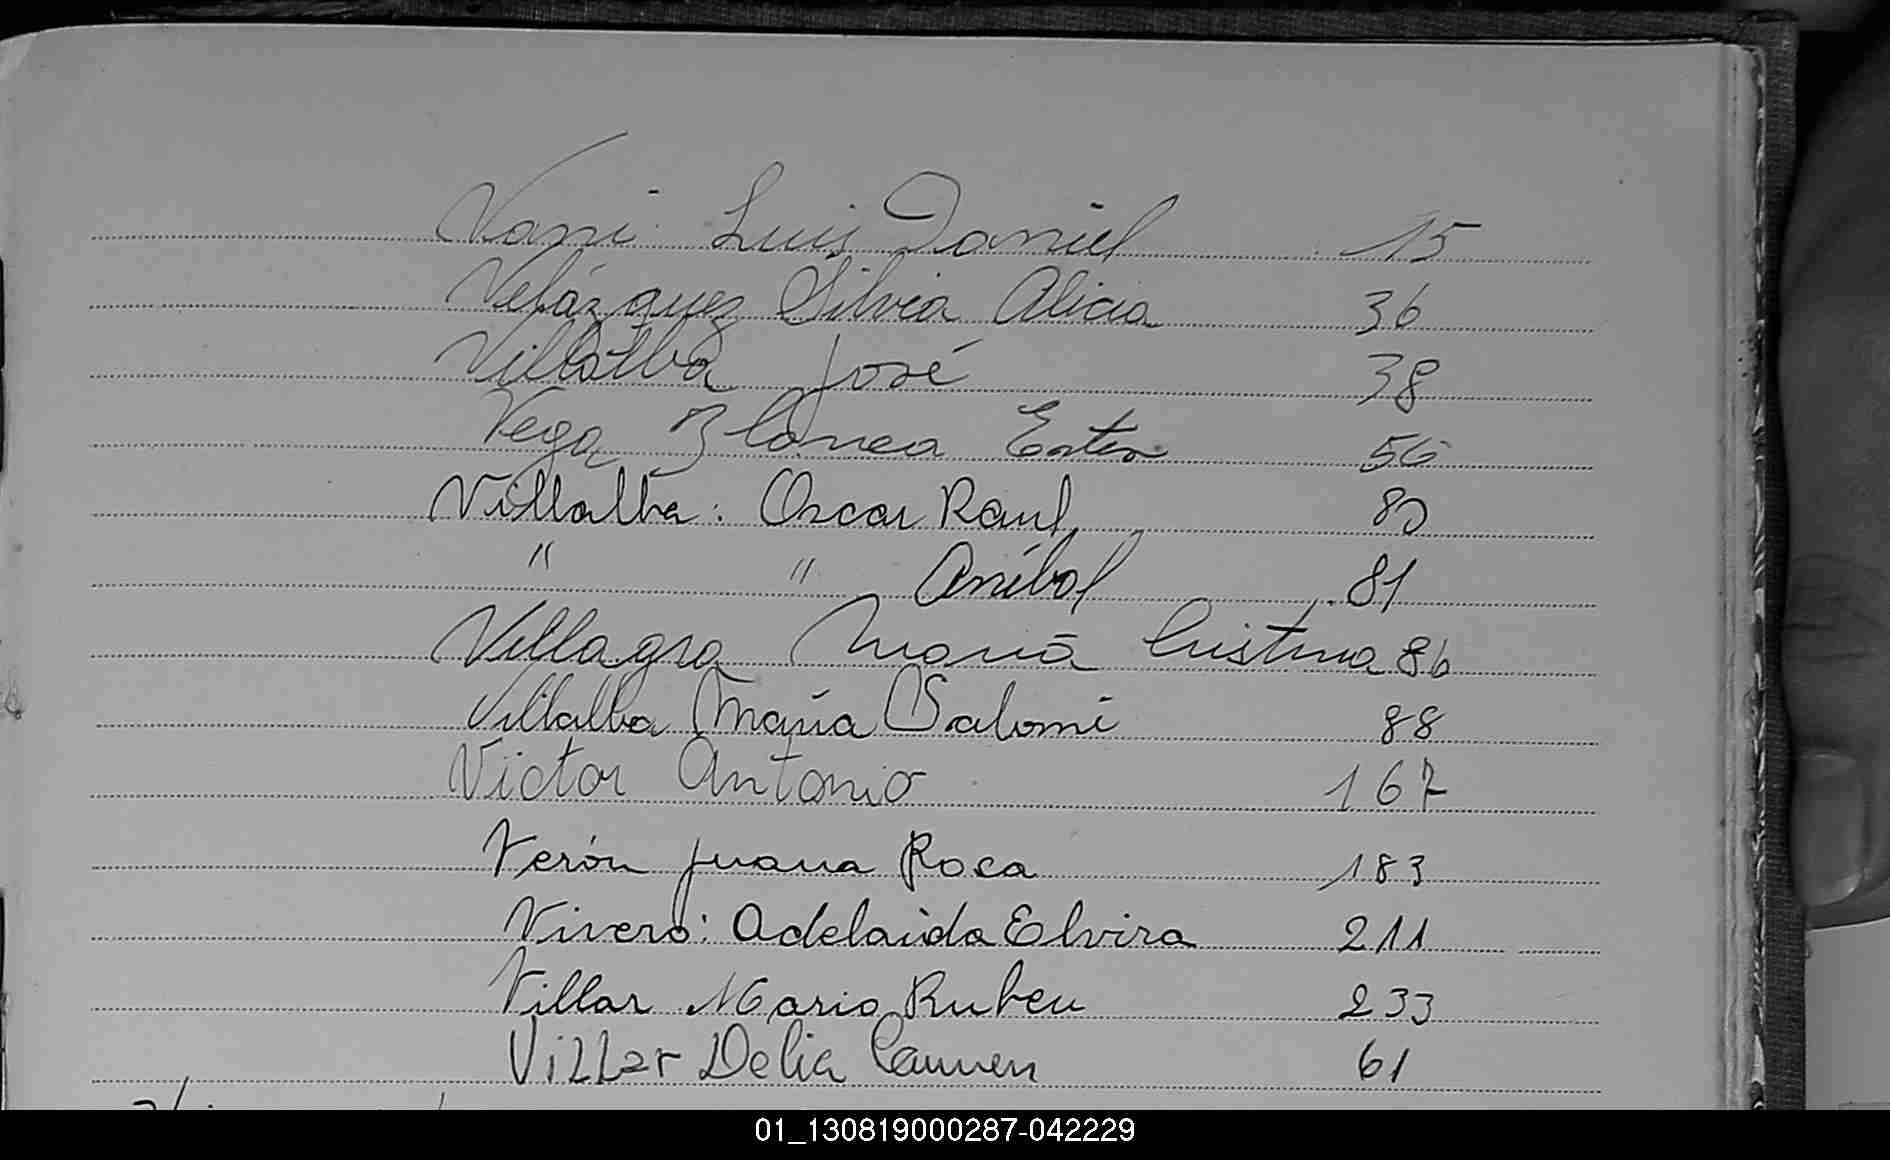 Vani Luis Daniel 15
Velázquez Silvia Alicia 36
Villalba José 38
Vega Blanca Ester 56
Villalba: Oscar Raul 80
" " Aníbal 81
Villagra María Cristina 86
Villalba María Salomé 88
Victor Antonio 167
Verón Juana Rosa 183
Vivero: Adelaida Elvira 211
Villar Mario Ruben 233
Villar Delia Carmen 61
01_130819000287-042229